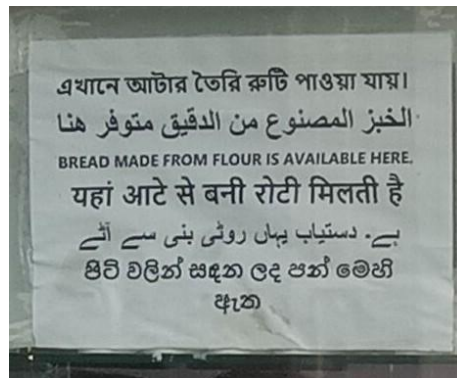 এখানে আটার তৈরি রুটি পাওয়া যায়।
الخبز المصنوع من الدقيق متوفر هنا
BREAD MADE FROM FLOUR IS AVAILABLE HERE.
यहां आटे से बनी रोटी मिलती है
ہے۔ دستیاب یہاں روٹی بنی سے آٹے
පිටි වලින් සඳන ලද පන් මෙහි
ඇත